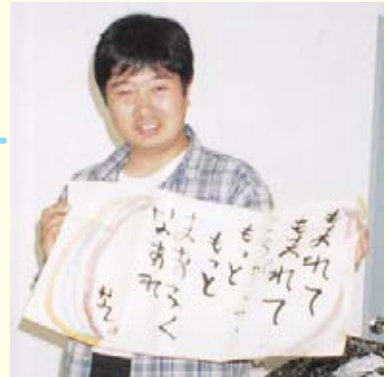 もまれて
もまれて
もっと
もっと
まあるく
なあれ